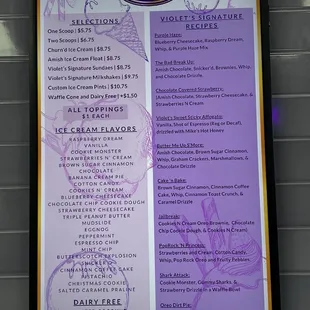 SELECTIONS
One Scoop | $5.75
Two Scoops | $6.75
Churn'd Ice Cream | $8.75
Amish Ice Cream Float | $8.75
Violet's Signature Sundaes | $8.75
Violet's Signature Milkshakes | $9.75
Custom Ice Cream Pints | $10.75
Waffle Cone and Dairy Free | +$1.50
ALL TOPPINGS
$1 EACH
ICE CREAM FLAVORS
RASPBERRY DREAM
VANILLA
COOKIE MONSTER
STRAWBERRIES N' CREAM
BROWN SUGAR CINNAMON
CHOCOLATE
BANANA CREAM PIE
COTTON CANDY
COOKIES N' CREAM
BLUEBERRY CHEESECAKE
CHOCOLATE CHIP COOKIE DOUGH
STRAWBERRY CHEESECAKE
TRIPLE PEANUT BUTTER
MUDSLIDE
EGGNOG
PEPPERMINT
ESPRESSO CHIP
MINT CHIP
BUTTERSCOTCH EXPLOSION
SNICKER'D
CINNAMON COFFEE CAKE
PISTACHIO
CHRISTMAS COOKIE
SALTED CARAMEL PRALINE
DAIRY FREE
VIOLET'S SIGNATURE
RECIPES
Purple Haze:
Blueberry Cheesecake, Raspberry Dream,
Whip, & Purple Haze Mix
The Bad Break Up:
Amish Chocolate, Snicker'd, Brownies, Whip
and Chocolate Drizzle
Chocolate Covered Strawberry:
Amish Chocolate, Strawberry Cheesecake, &
Strawberries N Cream
Violet's Sweet Sticky Affogato:
Vanilla, Shot of Espresso (Reg or Decaf),
drizzled with Mike's Hot Honey
Butter Me Up S'More:
Amish Chocolate, Brown Sugar Cinnamon,
Whip, Graham Crackers, Marshmallows, &
Chocolate Drizzle
Cake 'n Bake:
Brown Sugar Cinnamon, Cinnamon Coffee
Cake, Whip, Cinnamon Toast Crunch, &
Caramel Drizzle
Jailbreak:
Cookies N Cream Oreo Brownie, Chocolate
Chip Cookie Dough, & Cookies N Cream
PopRock 'N Pebbles:
Strawberries and Cream, Cotton Candy,
Whip, Pop Rock Oreo and Fruity Pebbles
Shark Attack:
Cookie Monster, Gummy Sharks, &
Strawberry Drizzle in a Waffle Bowl
Oreo Dirt Pie: